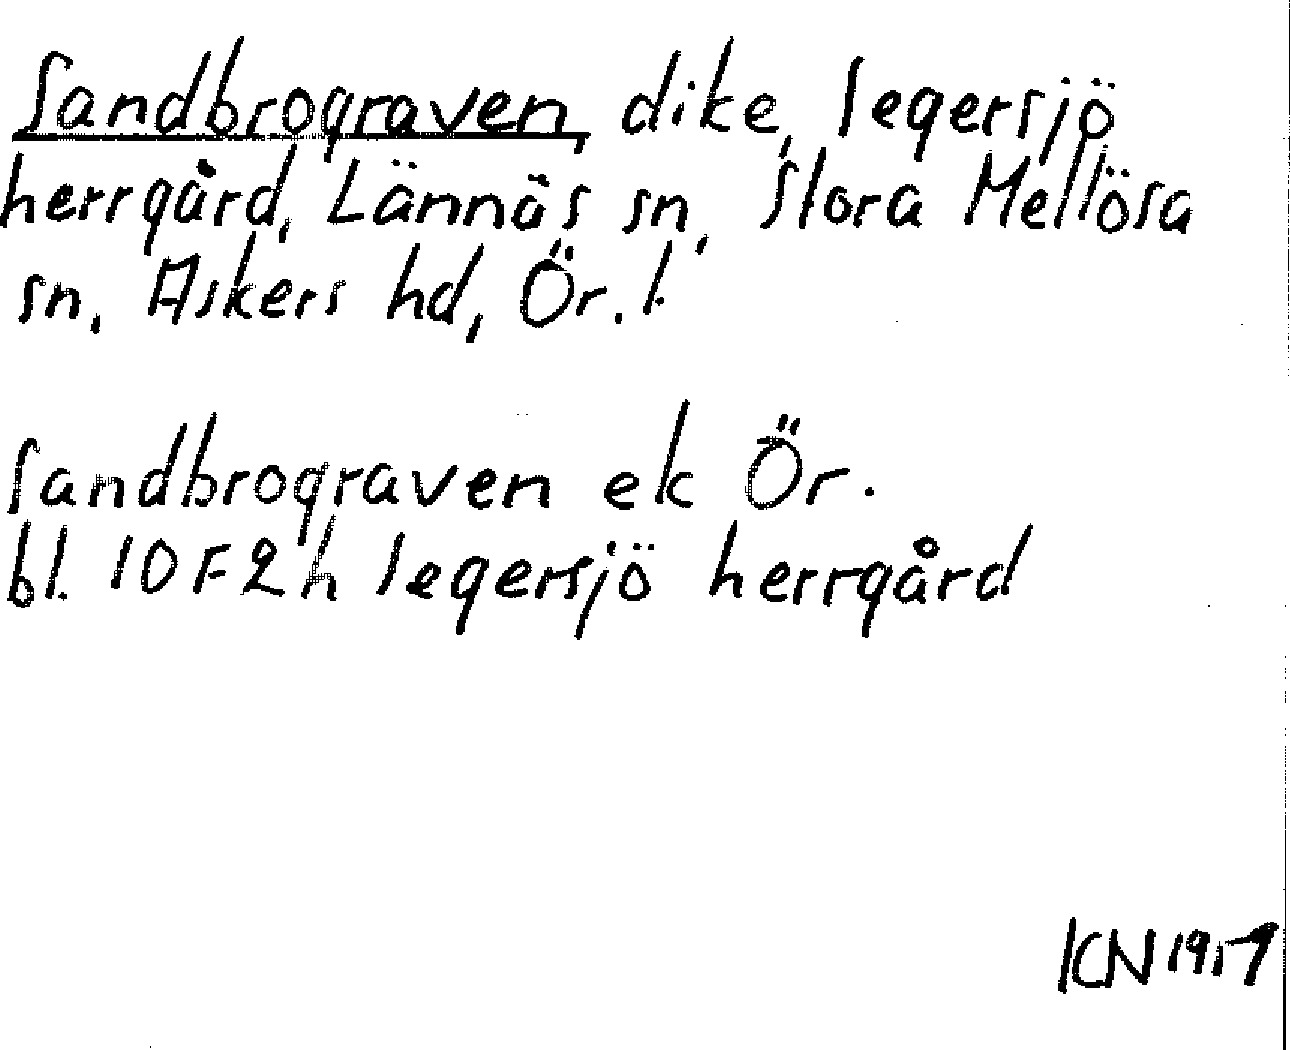 Sandbrograven, dike, Segersjö
herrgård, Lännäs sn, Stora Mellösa
sn, Askers hd, Ör. l.
Sandbrograven ek Ör.
bl. 10F2h Segersjö herrgård